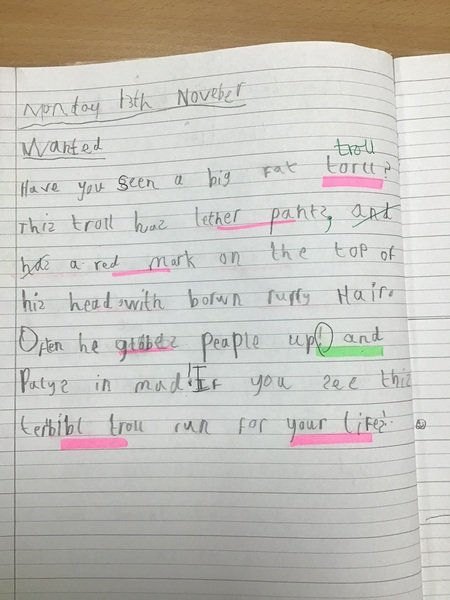 Monday 13th Noveber
Wanted
troll
Have you seen a big Fat torll?
This troll has lether pants, and
has a red mark on the top of
his head, with borwn rufty Hair.
Often he peaple up! and
Palys in mad! If you see this
terbibl troll run for your life!